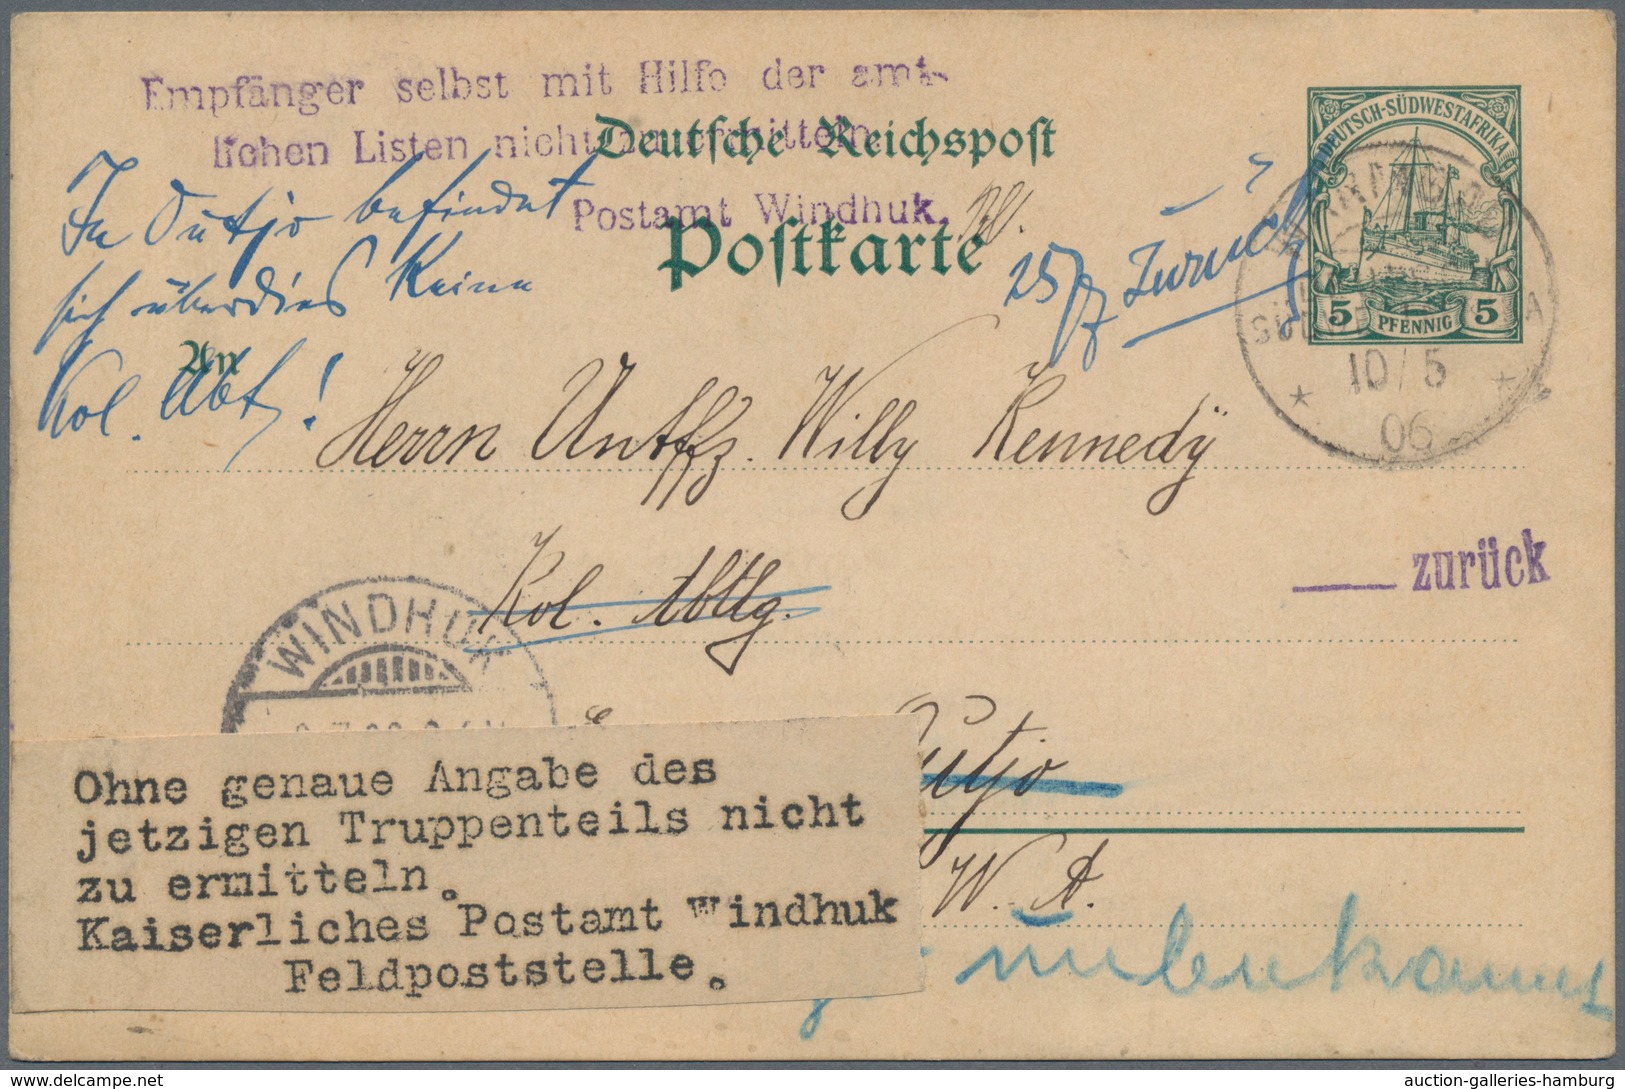 Empfänger selbst mit Hilfe der amt-
lichen Listen nicht zu ermitteln.
Postamt Windhuk.
Deutsche Reichspost
Postkarte
DEUTSCH-SÜDWESTAFRIKA
5 PFENNIG 5
10/5
06
In Outjo befindet
sich überdies Keine
Kol. Abt!
25/7 Zurück
An
Herrn Untffz. Willy Kennedÿ
Kol. Abtlg.
zurück
WINDHUK
Outjo
W. A.
Ohne genaue Angabe des
jetzigen Truppenteils nicht
zu ermitteln.
Kaiserliches Postamt Windhuk
Feldpoststelle.
unbekannt
auction-galleries-hamburg